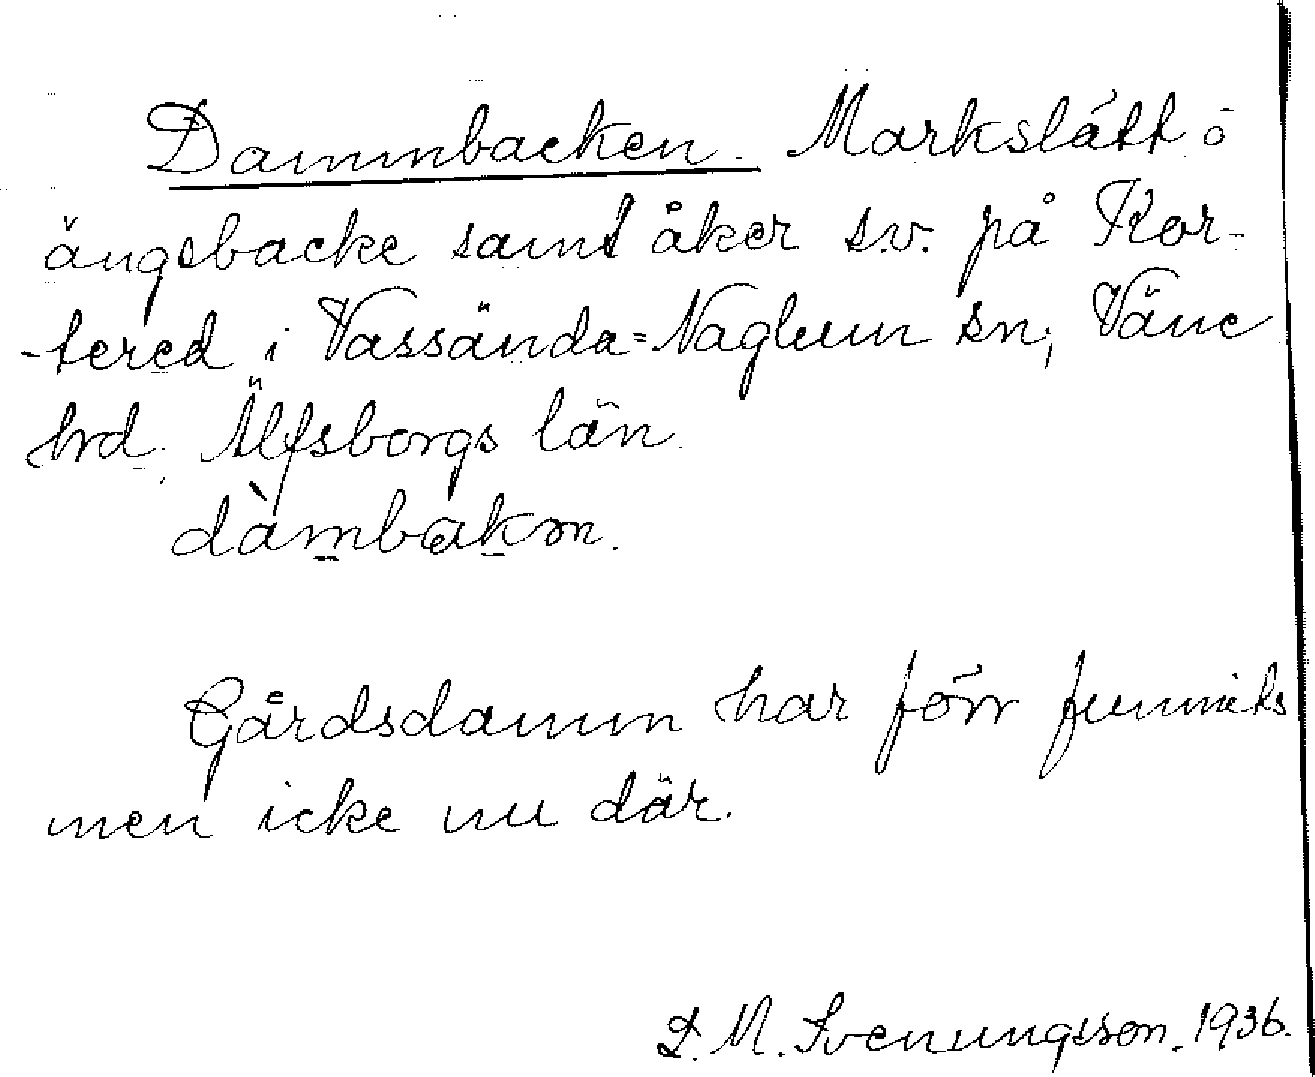 Dammbacken. Markslätt o
ängsbacke samt åker s.v. på Kor-
-tered i Vassända=Naglum sn; Väne
hrd. Älfsborgs län.
dàmbakɷn.
Gårdsdamm har förr funnits
men icke nu där.
D. M. Svenungsson. 1936.